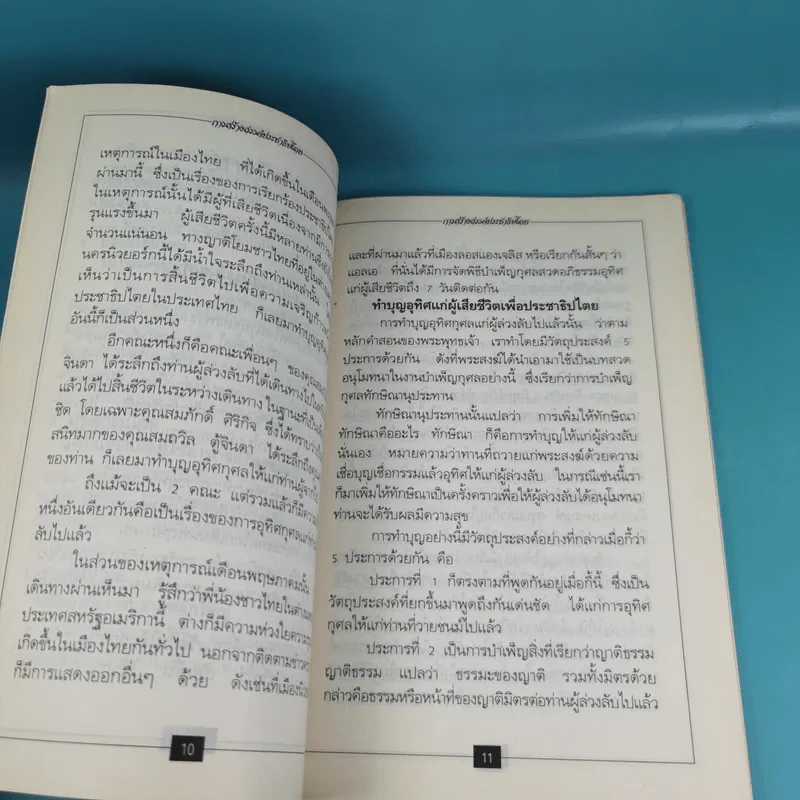 การสร้างสรรค์ประชาธิปไตย
เหตุการณ์ในเมืองไทย ที่ได้เกิดขึ้นในเดือน
ผ่านมานี้ ซึ่งเป็นเรื่องของการเรียกร้อง
ในเหตุการณ์นั้นได้มีผู้ที่เสียชีวิตเนื่องจากมีการ
รุนแรงขึ้นมา ผู้เสียชีวิตครั้งนี้มีหลายท่าน
จำนวนแน่นอน ทางญาติโยมชาวไทยที่อยู่ใน
นครนิวยอร์กนี้ได้มีน้ำใจระลึกถึงท่านเหล่านั้น
เห็นว่าเป็นการสิ้นชีวิตไปเพื่อความเจริญ
ประชาธิปไตยในประเทศไทย ก็เลยมาทำบุญ
อันนี้ก็เป็นส่วนหนึ่ง
อีกคณะหนึ่งก็คือคณะเพื่อนๆ ของ
จินดา ได้ระลึกถึงท่านผู้ล่วงลับที่ได้เดินทางไป
แล้วได้ไปสิ้นชีวิตในระหว่างเดินทาง ในฐานะที่เป็น
ชิด โดยเฉพาะคุณสมภักดิ์ ศิริกิจ ซึ่งได้ทราบว่า
สนิทมากของคุณสมถวิล ตู้จินดา ได้ระลึกถึง
ของท่าน ก็เลยมาทำบุญอุทิศกุศลให้แก่ท่าน
ถึงแม้จะเป็น 2 คณะ แต่รวมแล้วก็มี
หนึ่งอันเดียวกันคือเป็นเรื่องของการอุทิศกุศลแก่
ลับไปแล้ว
ในส่วนของเหตุการณ์เดือนพฤษภาคมนั้น
เดินทางผ่านเห็นมา รู้สึกว่าพี่น้องชาวไทยใน
ประเทศสหรัฐอเมริกานี้ ต่างก็มีความห่วงใย
เกิดขึ้นในเมืองไทยกันทั่วไป นอกจากติดตาม
ก็มีการแสดงออกอื่นๆ ด้วย ดังเช่นที่เมือง
10
การสร้างสรรค์ประชาธิปไตย
และที่ผ่านมาแล้วที่เมืองลอสแองเจลิส หรือเรียกกันสั้นๆ ว่า
แอลเอ ที่นั่นได้มีการจัดพิธีบำเพ็ญกุศลสวดอภิธรรมอุทิศ
แก่ผู้เสียชีวิตถึง 7 วันติดต่อกัน
ทำบุญอุทิศแก่ผู้เสียชีวิตเพื่อประชาธิปไตย
การทำบุญอุทิศกุศลแก่ผู้ล่วงลับไปแล้วนั้น ว่าตาม
หลักคำสอนของพระพุทธเจ้า เราทำโดยมีวัตถุประสงค์ 5
ประการด้วยกัน ดังที่พระสงฆ์ได้นำเอามาใช้เป็นบทสวด
อนุโมทนาในงานบำเพ็ญกุศลอย่างนี้ ซึ่งเรียกว่าการบำเพ็ญ
กุศลทักษิณานุประทาน
ทักษิณานุประทานนั้นแปลว่า การเพิ่มให้ทักษิณา
ทักษิณาคืออะไร ทักษิณา ก็คือการทำบุญให้แก่ผู้ล่วงลับ
นั่นเอง หมายความว่าทานที่ถวายแก่พระสงฆ์ด้วยความ
เชื่อบุญเชื่อกรรมแล้วอุทิศให้แก่ผู้ล่วงลับ ในกรณีเช่นนี้เรา
ก็มาเพิ่มให้ทักษิณาเป็นครั้งคราวเพื่อให้ผู้ล่วงลับได้อนุโมทนา
ท่านจะได้รับผลมีความสุข
การทำบุญอย่างนี้มีวัตถุประสงค์อย่างที่กล่าวเมื่อกี้ว่า
5 ประการด้วยกัน คือ
ประการที่ 1 ก็ตรงตามที่พูดกันอยู่เมื่อกี้นี้ ซึ่งเป็น
วัตถุประสงค์ที่ยกขึ้นมาพูดถึงกันเด่นชัด ได้แก่การอุทิศ
กุศลให้แก่ท่านที่วายชนม์ไปแล้ว
ประการที่ 2 เป็นการบำเพ็ญสิ่งที่เรียกว่าญาติธรรม
ญาติธรรม แปลว่า ธรรมะของญาติ รวมทั้งมิตรด้วย
กล่าวคือธรรมหรือหน้าที่ของญาติมิตรต่อท่านผู้ล่วงลับไปแล้ว
11